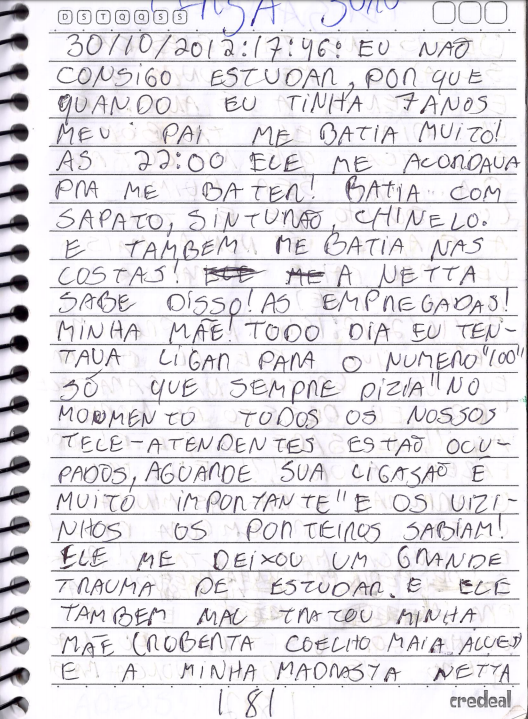 D S T Q Q S S
30/10/2012:17:46: EU NAÕ
CONSIGO ESTUDAR, POR QUE
QUANDO EU TINHA 7 ANOS
MEU PAI ME BATIA MUITO!
AS 22:00 ELE ME ACORDAVA
PRA ME BATER! BATIA COM
SAPATO, SINTURAÕ, CHINELO.
E TAMBEM ME BATIA NAS
COSTAS! ELE ME A NETTA
SABE DISSO! AS EMPREGADAS!
MINHA MÃE! TODO DIA EU TEN-
TAVA LIGAR PARA O NUMERO "100"
SÓ QUE SEMPRE DIZIA "NO
MOMENTO TODOS OS NOSSOS
TELE-ATENDENTES ESTAÕ OCU-
PADOS, AGUARDE SUA LIGASAÕ É
MUITO IMPORTANTE" E OS VIZI-
NHOS OS PORTEIROS SABIAM!
ELE ME DEIXOU UM GRANDE
TRAUMA DE ESTUDAR. E ELE
TAMBEM MAL TRATOU MINHA
MÃE (ROBERTA COELHO MAIA ALVES)
E A MINHA MADRASTA NETTA
181
credeal